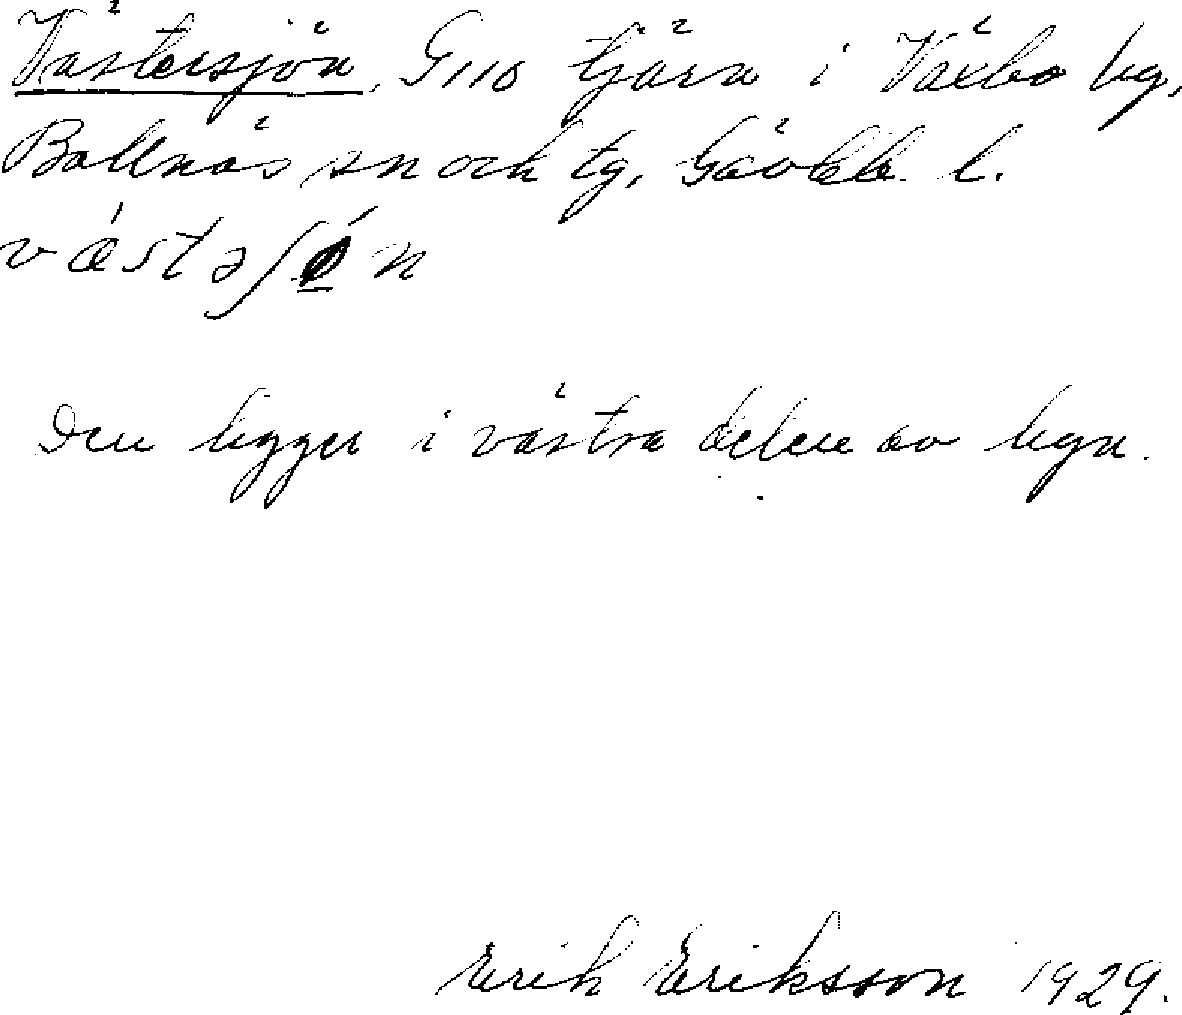 Västersjön, G110 tjärn i Växbo by,
Bollnäs sn och tg, Gävleb. l.
væstəʃøn
Den ligger i västra delen av byn.
Erik Eriksson 1929.